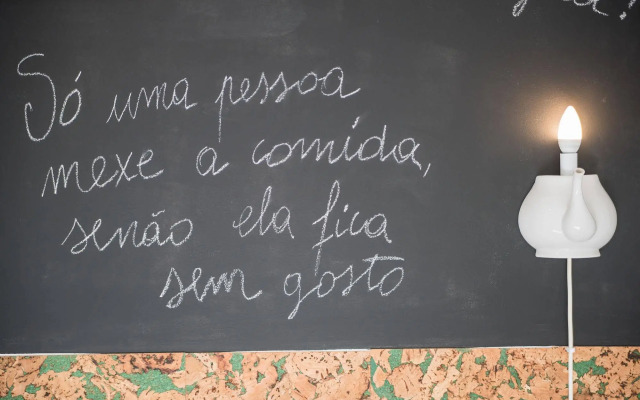 Só uma pessoa
mexe a comida,
senão ela fica
sem gosto